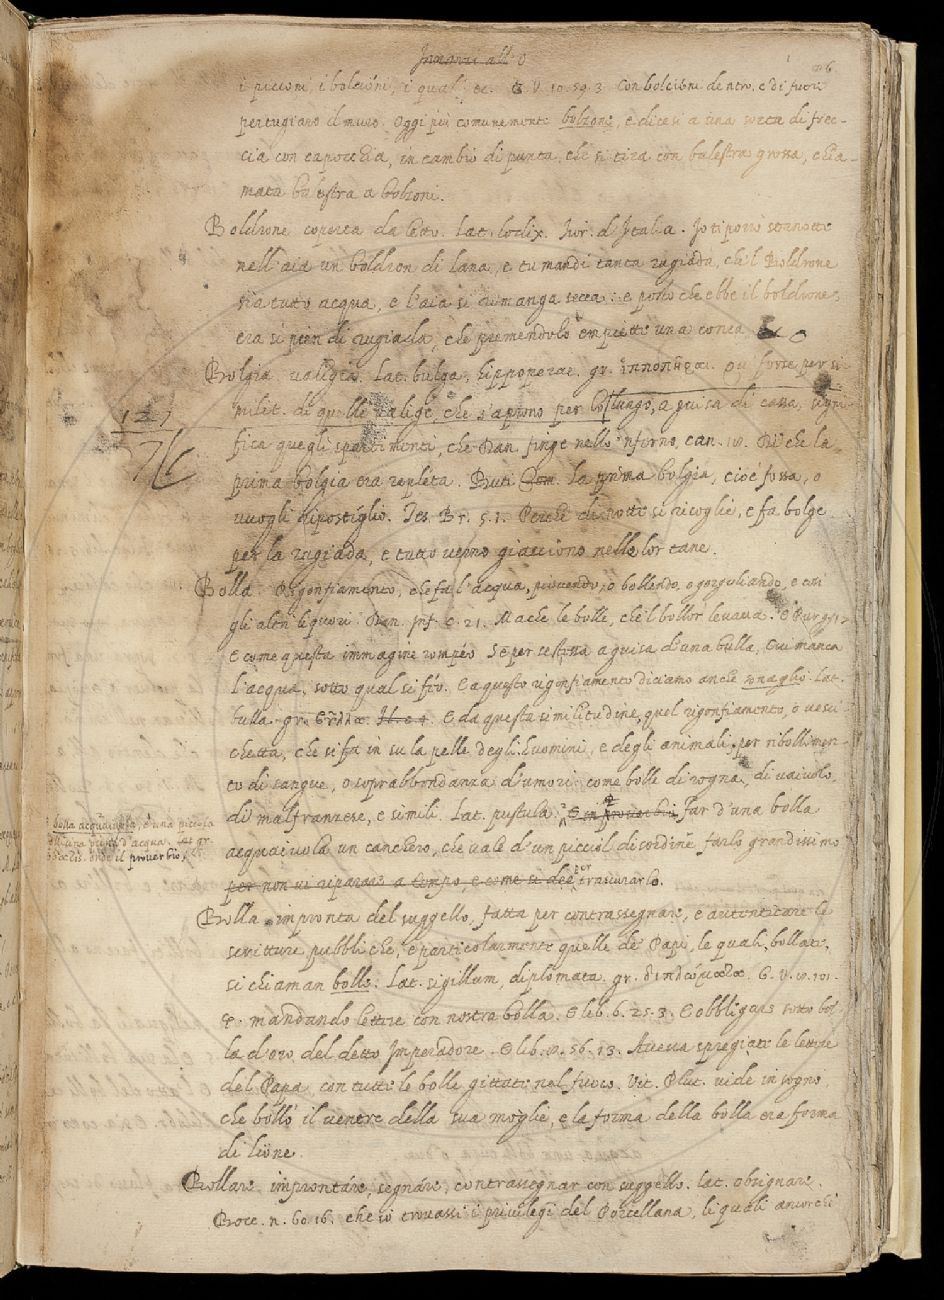 Innanzi all' O
i piccioni, i bolcioni, i quali ec. G. V. 10. 59. 3. Con bolcioni dentro, e di fuori
pertugiaro il muro. Oggi più comunemente bolzone, e dicesi a una sorta di frec-
cia con capocchia, in cambio di punta, che si tira con balestra grossa, chia-
mata balestra a bolzoni.
Boldrone coperta da letto. Lat. lodix. d'Italia. Io ti porrò stanotte
nell'aia un boldron di lana, e tu mandi tanta rugiada, che'l Boldrone
sia tutto acqua, e l'aia si rimanga secca: e posto che ebbe il boldrone,
era sì pien di rugiada, che premendolo empiette una conca
Bolgia valigia. Lat. bulga, hippoperae. gr. ἱπποπῆραι. forse per si-
milit. di quelle valige, che s'aprono per lo lungo, a guisa di cassa, signi-
fica quegli spartimenti, che Dan. finge nello 'nferno, can. Di che la
prima bolgia era repleta. But. Com. La prima bolgia, cioè fossa, o
vuogli dipostiglio. Tes. Br. 5. 1. Perchè di notte si ricoglie, e fa bolge
per la rugiada, e tutto verno giacciono nelle lor tane.
Bolla. Rigonfiamento, che fa l'acqua, piovendo, o bollendo, o gorgogliando, e così
gli altri liquori. Dan. Inf. c. 21. Ma che le bolle, che'l bollor levava. E Purg. 17.
E come questa immagine rompéo Se per se stessa a guisa d'una bulla, Cui manca
l'acqua, sotto qual si féo. E a questo rigonfiamento diciamo anche sonaglio. Lat.
bulla. gr. E da questa similitudine, quel rigonfiamento, o vesci-
chetta, che si fa in su la pelle degli huomini, e degli animali, per ribollimen-
to di sangue, o soprabbondanza d'umori: come bolle di rogna, di vaiuolo,
di malfranzese, e simili. Lat. pustula. E in proverbio, far d'una bolla
acquaiuola un canchero, che vale d'un picciol disordine farlo grandissimo
per non vi riparare a tempo, e come si dee per trascurarlo.
bolla acquaiuola, è una piccola
d'acqua. Lat. gr.
onde il proverbio,
Bolla. impronta del suggello, fatta per contrassegnare, e autenticare le
scritture pubbliche, e particolarmente quelle de' Papi, le quali, bollate,
si chiaman bolle. Lat. sigillum, diplomata. gr. διπλώματα. G. V.
mandando lettere con nostra bolla. E lib. 6. 25. 3. E obbligars sotto bol-
la d'oro del detto Imperadore. E lib. 56. 13. Aveva spregiate le lettere
del Papa, con tutte le bolle gittate nel fuoco. Vit. Plut. vide in sogno
che bollò il ventre della sua moglie, e la forma della bolla era forma
di lione.
Bollare improntare, segnare, contrassegnar con suggello. Lat. obsignare.
Bocc. n. 60. 16. che io trovassi i privilegi del Porcellana, li quali ancorchè
127
76